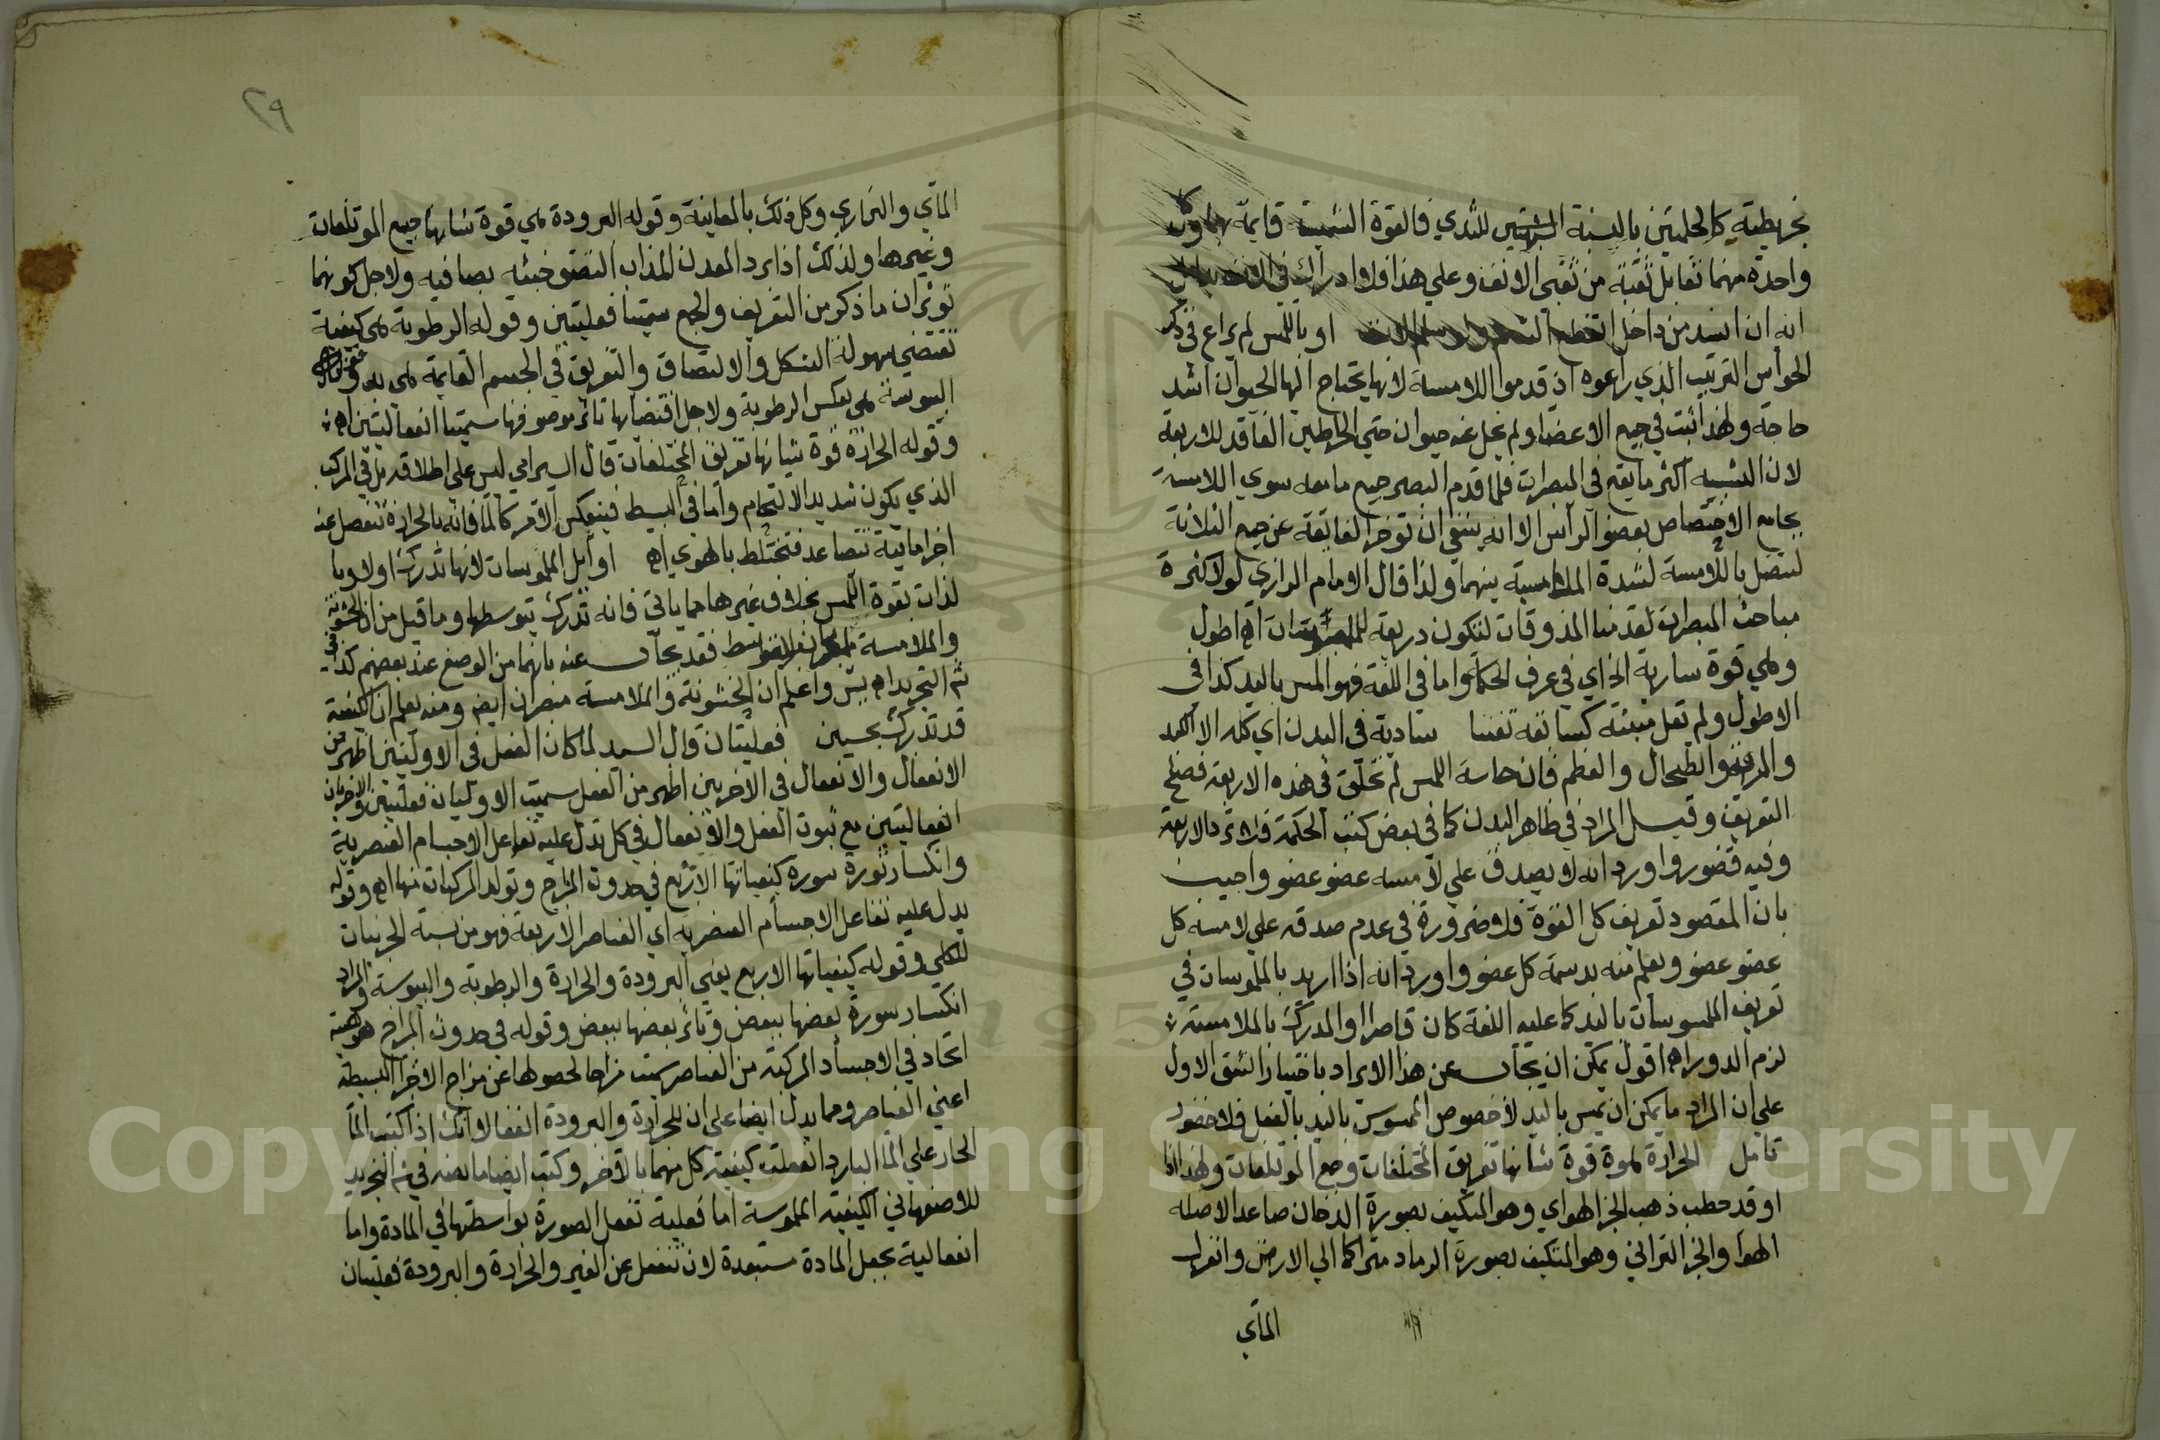 بخريطيته كالحلمتين بالنسبة للثدي فالقوة الشمية قايمة بهما وكل
واحدة منهما تقابل ثقبة من ثقبي الانف وعلي هذا فلا ادراك في الانف
انه ان انسد من داخل او باللمس لم يراع في ذكر
الحواس الترتيب الذي راعوه اذ قدموا اللامسة لانها يحتاج اليها الحيوان اشد
حاجة ولهذا اثبت في جميع الاعضا ولم يخل عنه حيوان حتي الخراطين الفاقد للاربعة
لان التشبيه اكثر ما يقع في المبصرات فلما قدم البصر جميع ما معه سوي اللامسة
بجامع الاختصاص بعضو الرأس الا انه ينبغي ان توخر الفايقة عن جميع الثلاثة
لتتصل باللامسة لشدة المناسبة بينهما ولذا قال الامام الرازي لولا كثرة
مباحث المبصرات لقدمنا المذوقات لتكون دريعة اه اطول
وهي قوة سارية الخ اي في عرف الحكما واما في اللغة فهو المس باليد كذا في
الاطول ولم يقل منبثة كسابقه تفننا سارية في البدن اي كله الا الكبد
والرية والطحال والعظم فان حاسة اللمس لم تخلق في هذه الاربعة فصلح
التعريف وقيل المراد في ظاهر البدن كما في بعض كتب الحكمة فلا ترد الاربعة
وفيه قصور واورد انه لا يصدق علي لامسه عضو عضو واجيب
بان المقصود تعريف كل القوة فلا ضرورة في عدم صدقه علي لامسه كل
عضو عضو ويعلم منه بدسمة كل عضو واورد انه اذا اريد بالملموسات في
تعريف الملموسات باليد كما عليه اللغة كان قاصرا او المدرك بالملامسة
لزم الدور اه اقول يمكن ان يجاب عن هذا الايراد باختيار الشق الاول
علي ان المراد ما يمكن ان يمس باليد لا خصوص الممسوس باليد بالفعل فلا قصور
تامل الحرارة هو قوة شانها تفريق المختلفات وجمع المؤتلفات ولهذا اذا
اوقد حطب ذهب الجزء الهواي وهو المتكيف بصورة الدخان صاعدا لاصله
الهوا والجزء الترابي وهو المتكيف بصورة الرماد متراكما الي الارض وانعزل
المآي
٢٩
المآي والناري وكل ذلك بالمعاينة وقوله البرودة هي قوة شانها جميع الموتلفات
وغيرها ولذلك اذا برد المعدن المذاب التصق خبثه بصافيه ولاجل كونهما
توثران ما ذكر من التفريق والجمع سميتا فعليتين وقوله الرطوبة هي كيفية
تقتضي سهولة التشكل والالتصاق والتفريق في الجسم القايمة هي به وقوله
اليبوسة هي بعكس الرطوبة ولاجل اقتضايها تاثر موصوفها سميتا انفعاليتين اه
وقوله الحرارة قوة شانها تفريق المختلفات قال السيرامي ليس علي اطلاقه بل في المركب
الذي يكون شديد الالتحام واما في البسيط فينعكس الامر كالما فانه بالحرارة تنفصل عنه
اجزا مايية تتصاعد فتختلط بالهوي اه اوايل الملموسات لانها تدرك اولا وبا
لذات بقوة اللمس بخلاف غيرها مما ياتي فانه تدرك بتوسطها وما قيل من ان الخشونة
والملامسة فقد يجاب عنه بانهما من الوضع عند بعضهم كذا في
شم التجريد اه يس واعلم ان الخشونة والملامسة مبصران ايضا ومنه يعلم ان الكيفية
قد تدرك بحسين فعليتان قال السيد لما كان الفعل في الاوليين اظهر من
الانفعال والانفعال في الاخريين اظهر من الفعل سميت الاوليان فعليتين والاخريان
انفعاليتين مع ثبوت الفعل والانفعال في كل تدل عليه تفاعل الاجسام العنصرية
وانكسار ثورة سورة كيفياتها الاربع في حدوث المزاج وتولد المركبات منها اه وقوله
يدل عليه تفاعل الاجسام العنصرية اي العناصر الاربعة فهو من نسبة الجزييات
للكلي وقوله كيفياتها الاربع يعني البرودة والحرارة والرطوبة واليبوسة والمراد
انكسار سورة بعضها ببعض وتاثر بعضها ببعض وقوله في حدوث المزاج هو هيية
اتحاد في الاجساد المركبة من العناصر سميت مزاجا لحصولها عن مزاج الاجزا البسيطة
اعني العناصر ومما يدل ايضا علي ان للحرارة والبرودة انفعالا انك اذا كببت الما
الحار علي الما البارد انفعلت كيفية كل منهما بالاخر وكتب ايضا ما نصه في شم التجريد
للاصفهاني الكيفية الملموسة اما فعلية تفعل الصورة بواسطتها في المادة واما
انفعالية يجعل المادة مستعدة لان تنفعل عن الغير والحرارة والبرودة فعليتان